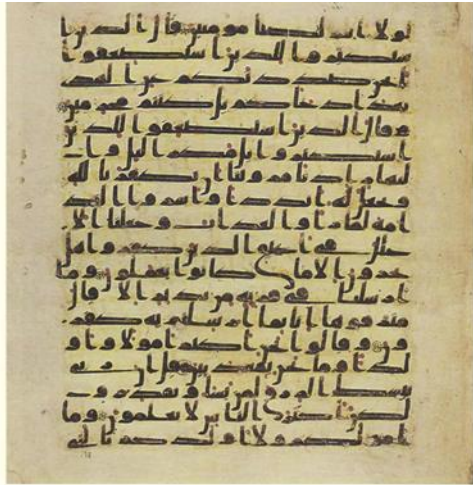 لولا انتم لكنا مومنين قال الذين ا
ستكبروا للذين استضعفوا ا
نحن صددنكم عن الهدى
بعد اذ جاكم بل كنتم مجرمين
وقال الذين استضعفوا للذين
استكبروا بل مكر اليل وا
لنهار اذ تامروننا ان نكفر بالله
ونجعل له اندادا واسروا الندا
مة لما راوا العذاب وجعلنا الا
غلل في اعناق الذين كفروا هل
يجزون الا ما كانوا يعملون وما
ارسلنا في قرية من نذير الا قال
مترفوها انا بما ارسلتم به كفر
ون وقالوا نحن اكثر امولا واو
لدا وما نحن بمعذبين قل ان ربي
يبسط الرزق لمن يشا ويقدر و
لكن اكثر الناس لا يعلمون وما
امولكم ولا اولدكم بالتي